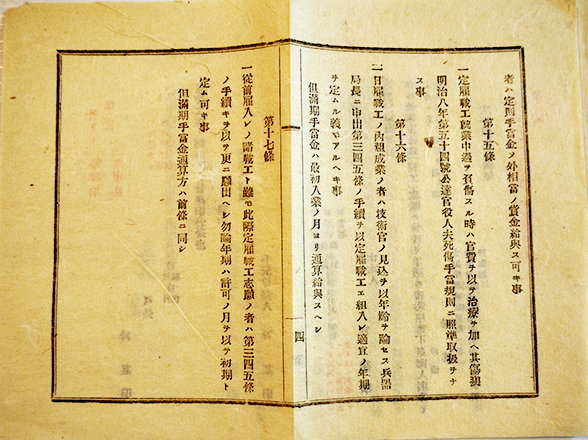 者ハ定則手當金ノ外相當ノ賞金給與ス可キ事
第十五條
一定雇職工就業中過ヲ負傷スル時ハ官費ヲ以テ治療ヲ加ヘ其傷狀
明治八年第五十四號公達官役人夫死傷手當規則ニ照準取扱ヲナ
ス事
第十六條
一日雇職工ノ內粗成業ノ者ハ技術官ノ見込ヲ以年齡ヲ論セス兵器
局長ニ申出第三四五條ノ手續ヲ以定雇職工エ組入レ適宜ノ年期
ヲ定ムル義モアルヘキ事
但滿期手當金ハ最初入業ノ月ヨリ通算給與スヘシ
四
第十七條
一從前雇入レノ諸職工ト雖モ此際定雇職工志願ノ者ハ第三四五條
ノ手續キヲ以テ更ニ願出ヘシ勿論年期ハ許可ノ月ヲ以テ初期ト
定ム可キ事
但滿期手當金通算方ハ前條ニ同シ